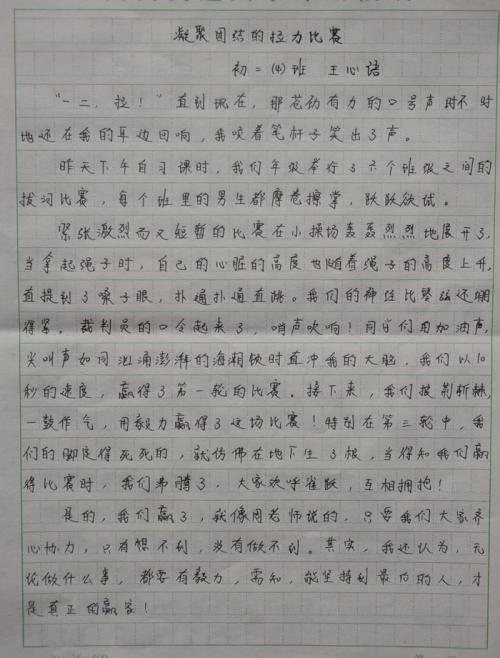 凝聚团结的拉力比赛
初二(4)班 王心语
“一二，拉！”直到现在，那花劲有力的口号声时不时
地还在我的耳边回响，我咬着笔杆子笑出了声。
昨天下午自习课时，我们年级举行了六个班级之间的
拔河比赛，每个班里的男生都摩卷擦掌，跃跃欲试。
紧张激烈而又短暂的比赛在小操场轰轰烈烈地展开了，
当拿起绳子时，自己的心脏的高度也随着绳子的高度上升，
直提到了嗓子眼，扑通扑通直跳。我们的神经比琴弦还绷
得紧。裁判员的口令起来了，哨声吹响！同学们用加油声，
尖叫声如同汹涌澎湃的海潮顿时直冲我的大脑，我们以10
秒的速度，赢得了第一轮的比赛。接下来，我们披荆斩棘，
一鼓作气，用毅力赢得了这场比赛！特别在第三轮中，我
们的脚定得死死的，就仿佛在地下生了根，当得知我们赢
得比赛时，我们沸腾了，大家欢呼雀跃，互相拥抱！
是的，我们赢了，就像周老师说的，只要我们大家齐
心协力，只有想不到，没有做不到。其实，我还认为，无
论做什么事，都要有毅力，需知，能坚持到最后的人，才
是真正的赢家！